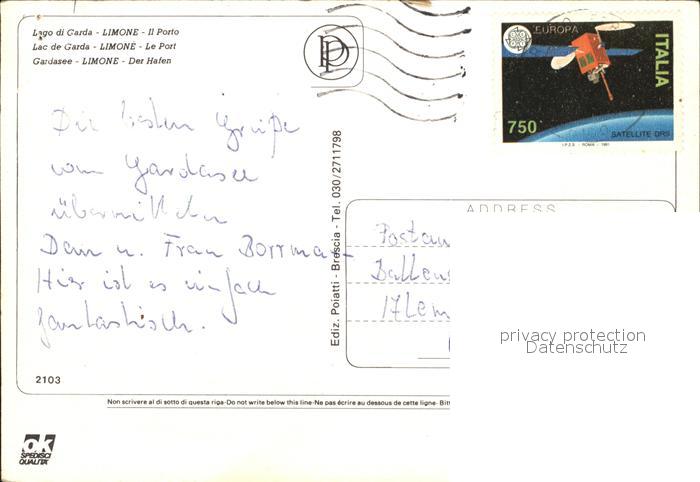 Lago di Garda - LIMONE - Il Porto
Lac de Garda - LIMONE - Le Port
Gardasee - LIMONE - Der Hafen
PP
EUROPA
ITALIA
750
SATELLITE DRS
I.P.Z.S. - ROMA - 1991
Die besten Grüße
vom Gardasee
übermitteln
Dam u. Frau Borrmann
Hier ist es einfach
fantastisch.
Ediz. Poiatti - Brescia - Tel. 030/2711798
ADDRESS
Postam
Ballens
17 Lem
privacy protection
Datenschutz
2103
Non scrivere al di sotto di questa riga-Do not write below this line-Ne pas écrire au dessous de cette ligne-Bitt
ok
SPEDISCI
QUALITÀ